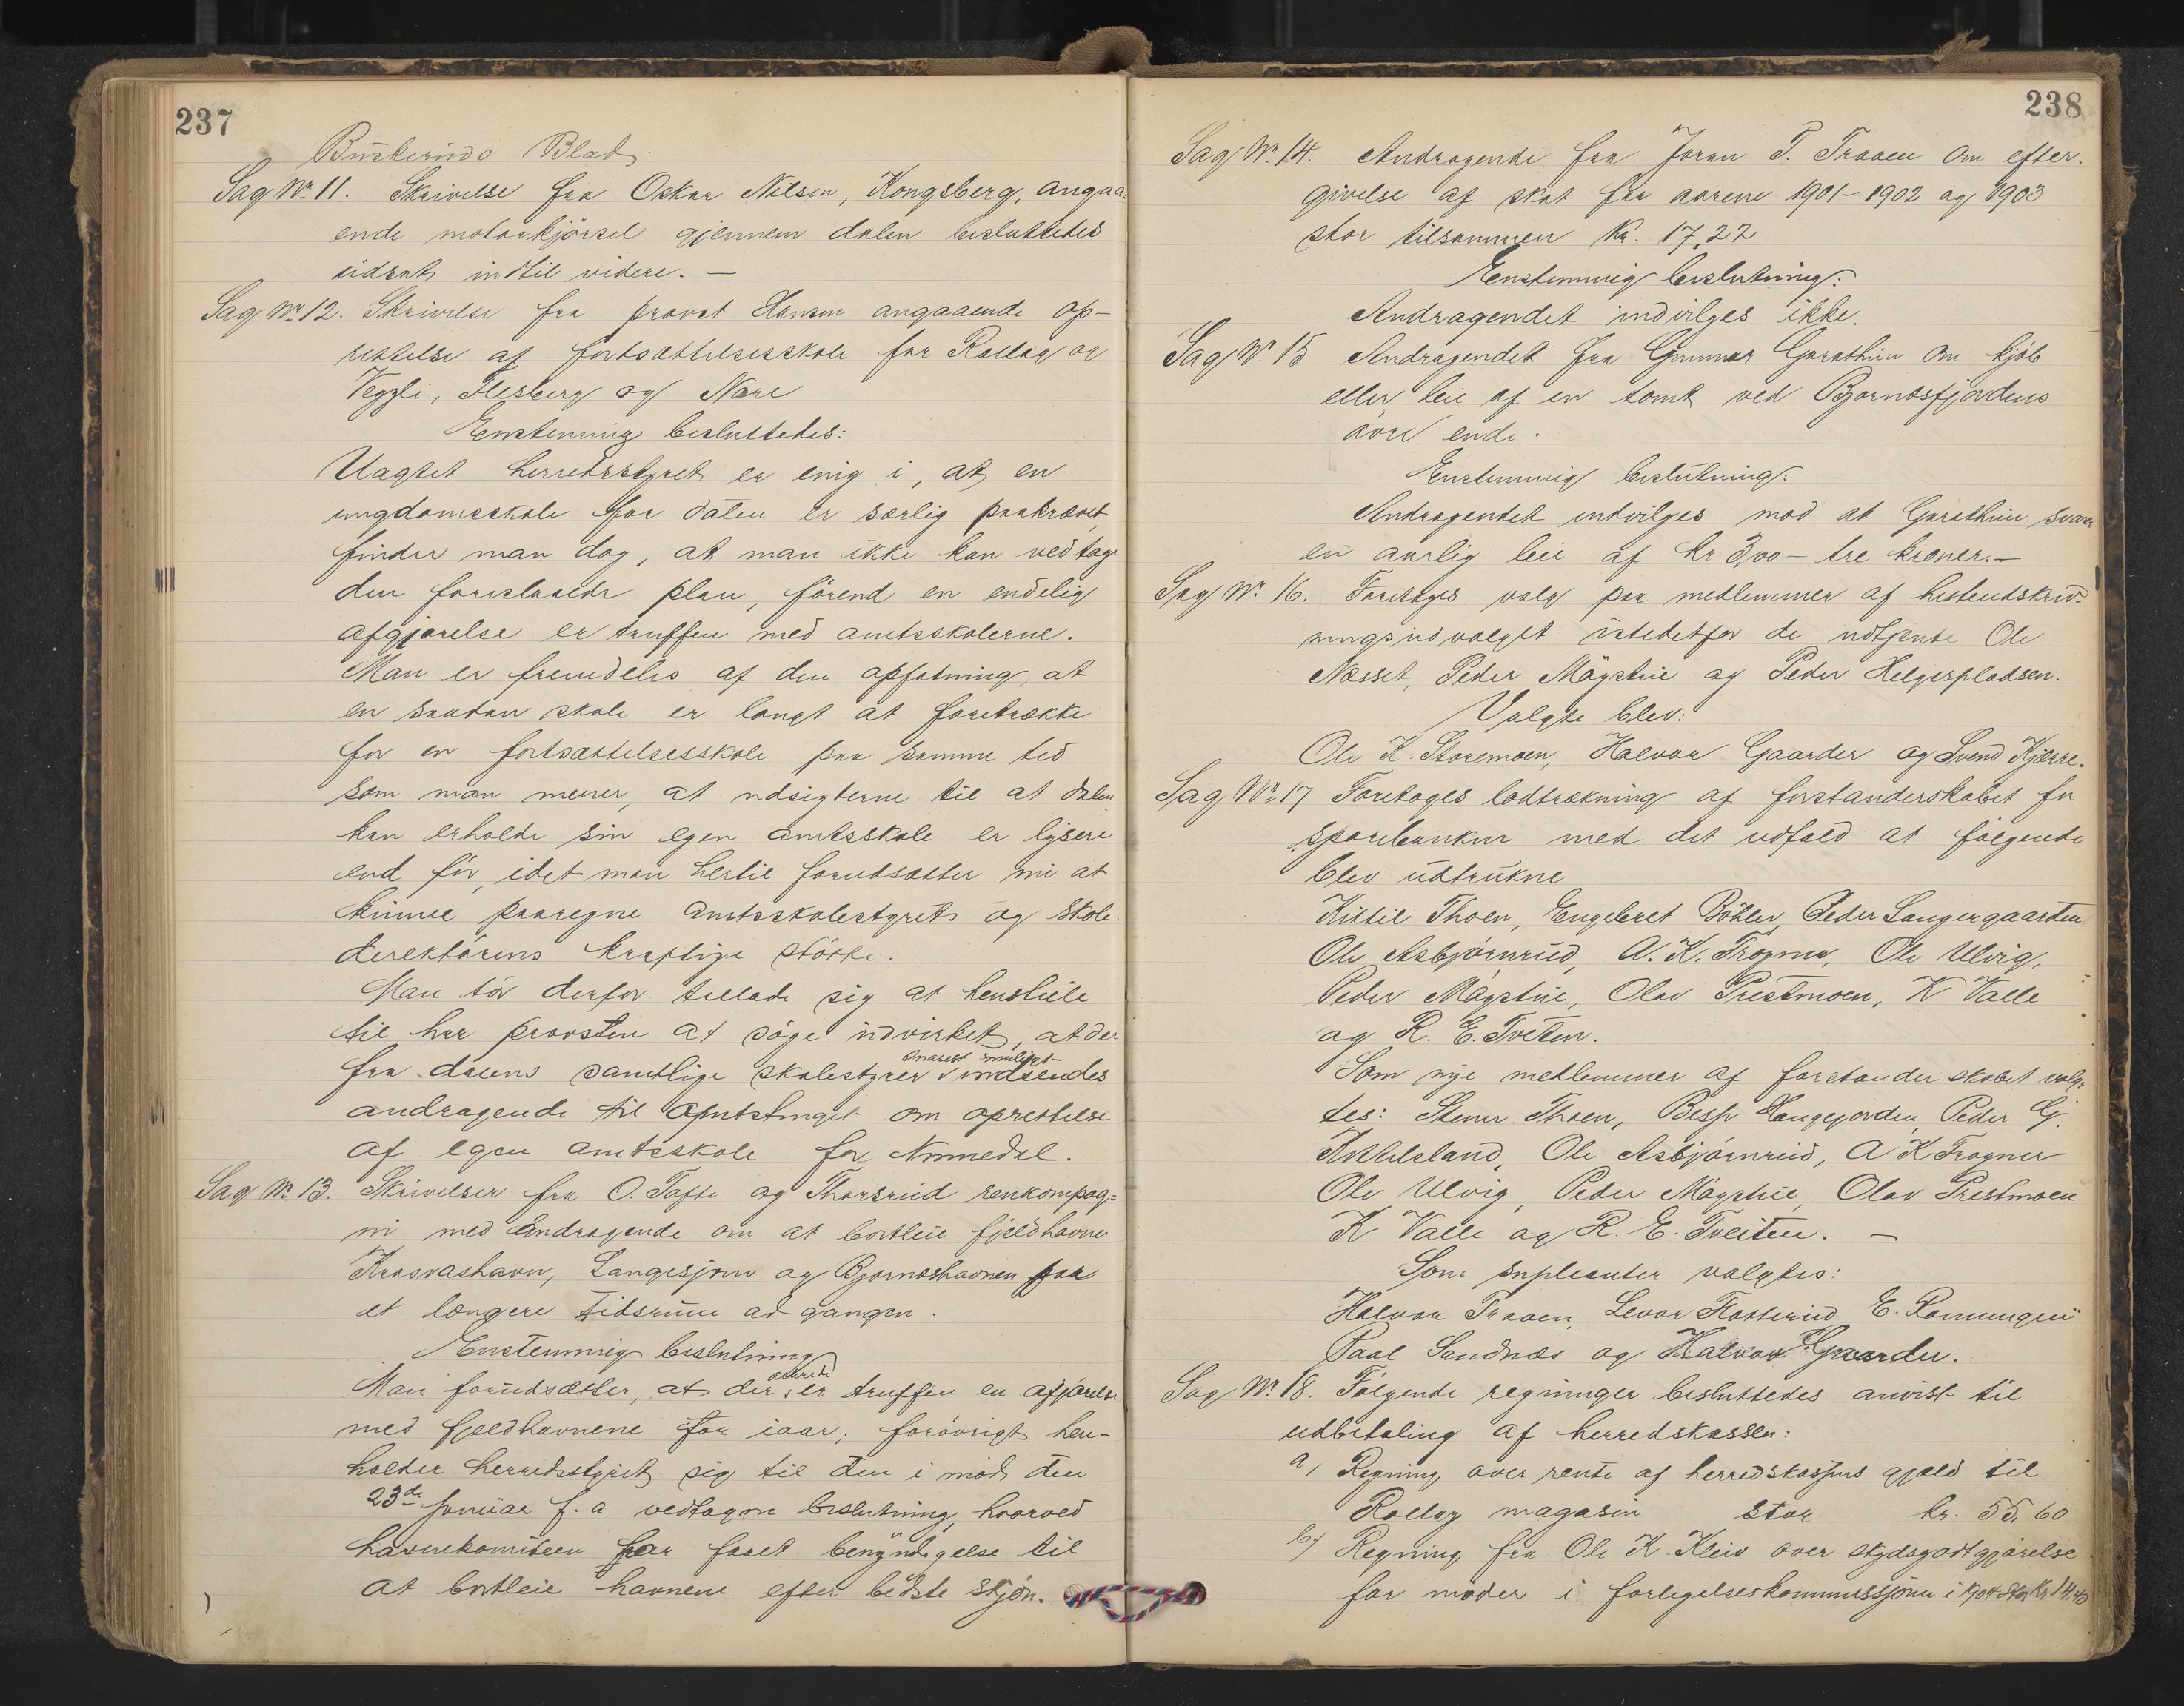 237
Buskeruds Blad.
Sag No. 11. Skrivelse fra Oskar Nilsen, Kongsberg, angaa-
ende motorkjörsel gjennem dalen besluttedes
udsat indtil videre. —
Sag No. 12. Skrivelse fra provst Hansen angaaende op-
rettelse af fortsættelsesskole for Rollag og
Veggli, Flesberg og Nore
Enstemmig besluttedes:
Uagtet herredsstyret er enig i, at en
ungdomsskole for dalen er særlig paakrævet,
finder man dog, at man ikke kan vedtage
den foreslaaede plan, förend en endelig
afgjørelse er truffen med amtsskolerne.
Man er fremdeles af den opfatning, at
en saadan skole er langt at foretrække
for en fortsættelsesskole paa samme tid
som man mener, at udsigterne til at dalen
kan erholde sin egen amtsskole er lysere
end för, idet man hertil forudsætter mi at
kunne paaregne amtsskolestyrets og skole-
direktörens kraftige störke.
Man tör derfor tillade sig at henstille
til hr provsten at söge udvirket, at der
fra dalens samtlige skolestyrer snarest muligt indsendes
andragende til amtstinget om oprettelse
af egen amtsskole for Numedal.
Sag No. 13. Skrivelser fra O. Tofte og Thorsrud renkompag-
ni med andragende om at bortleie fjeldhavne
Krasvashavn, Langesjøen og Bjorneshavnen for
et længere tidsrum ad gangen.
Enstemmig beslutning
Man forudsætter, at der allerede er truffen en afgjørelse
med fjeldhavnene for iaar; forövrigt hen-
holder herredsstyret sig til den i möde den
23de januar f. a vedtagne beslutning, hvorved
havnekomiteen har faaet bemyndigelse til
at bortleie havnene efter bedste skjön.
238
Sag No. 14. Andragende fra Joran P. Traaen om efter-
givelse af skat for aarene 1901–1902 og 1903
stor tilsammen Kr. 17,22
Enstemmig beslutning:
Andragendet indvilges ikke.
Sag No. 15 Andragendet fra Gunnar Garathun om kjöb
eller leie af en tomt ved Bjornesfjordens
övre ende.
Enstemmig beslutning:
Andragendet indvilges mod at Garathun svarer
en aarlig leie af kr 3,00 – tre kroner. —
Sag No. 16. Foretoges valg paa medlemmer af hesteudskriv-
ningsudvalget istedetfor de udtjente Ole
Næsset, Peder Mögstue og Peder Helgespladsen.
Valgte blev:
Ole K. Storemoen, Halvor Gaarder og Svend Kjærre.
Sag No. 17 Foretoges lodtrækning af forstanderskabet for
sparebanken med det udfald at følgende
blev udtrukne
Kittil Thoen, Engebret Böhler, Peder Langergaarden
Ole Asbjörnrud, A. K. Trogner, Ole Ulvig,
Peder Mögstue, Olav Prestmoen, K Valle
og R. E. Tveten.
Som nye medlemmer af forstanderskabet valg-
tes: Stener Thoen, Besse Haugejorden, Peder G.
Kittelsland, Ole Asbjörnrud, A K Trogner
Ole Ulvig, Peder Mögstue, Olav Prestmoen
K Valle og R. E. Tveiten. —
Som supleanter valgtes:
Halvor Traaen, Levor Flatterud, E.
Paal Sandnes og Halvor Gaarder.
Sag No. 18. Følgende regninger besluttedes anvist til
udbetaling af herredskassen:
a, Regning over rente af herredskassens gjæld til
Rollag magasin stor kr. 55,60
b, Regning fra Ole K. Kleiv over skydsgodtgjørelse
for møder i forligelseskommissjonen i 1904 stor Kr 14,40